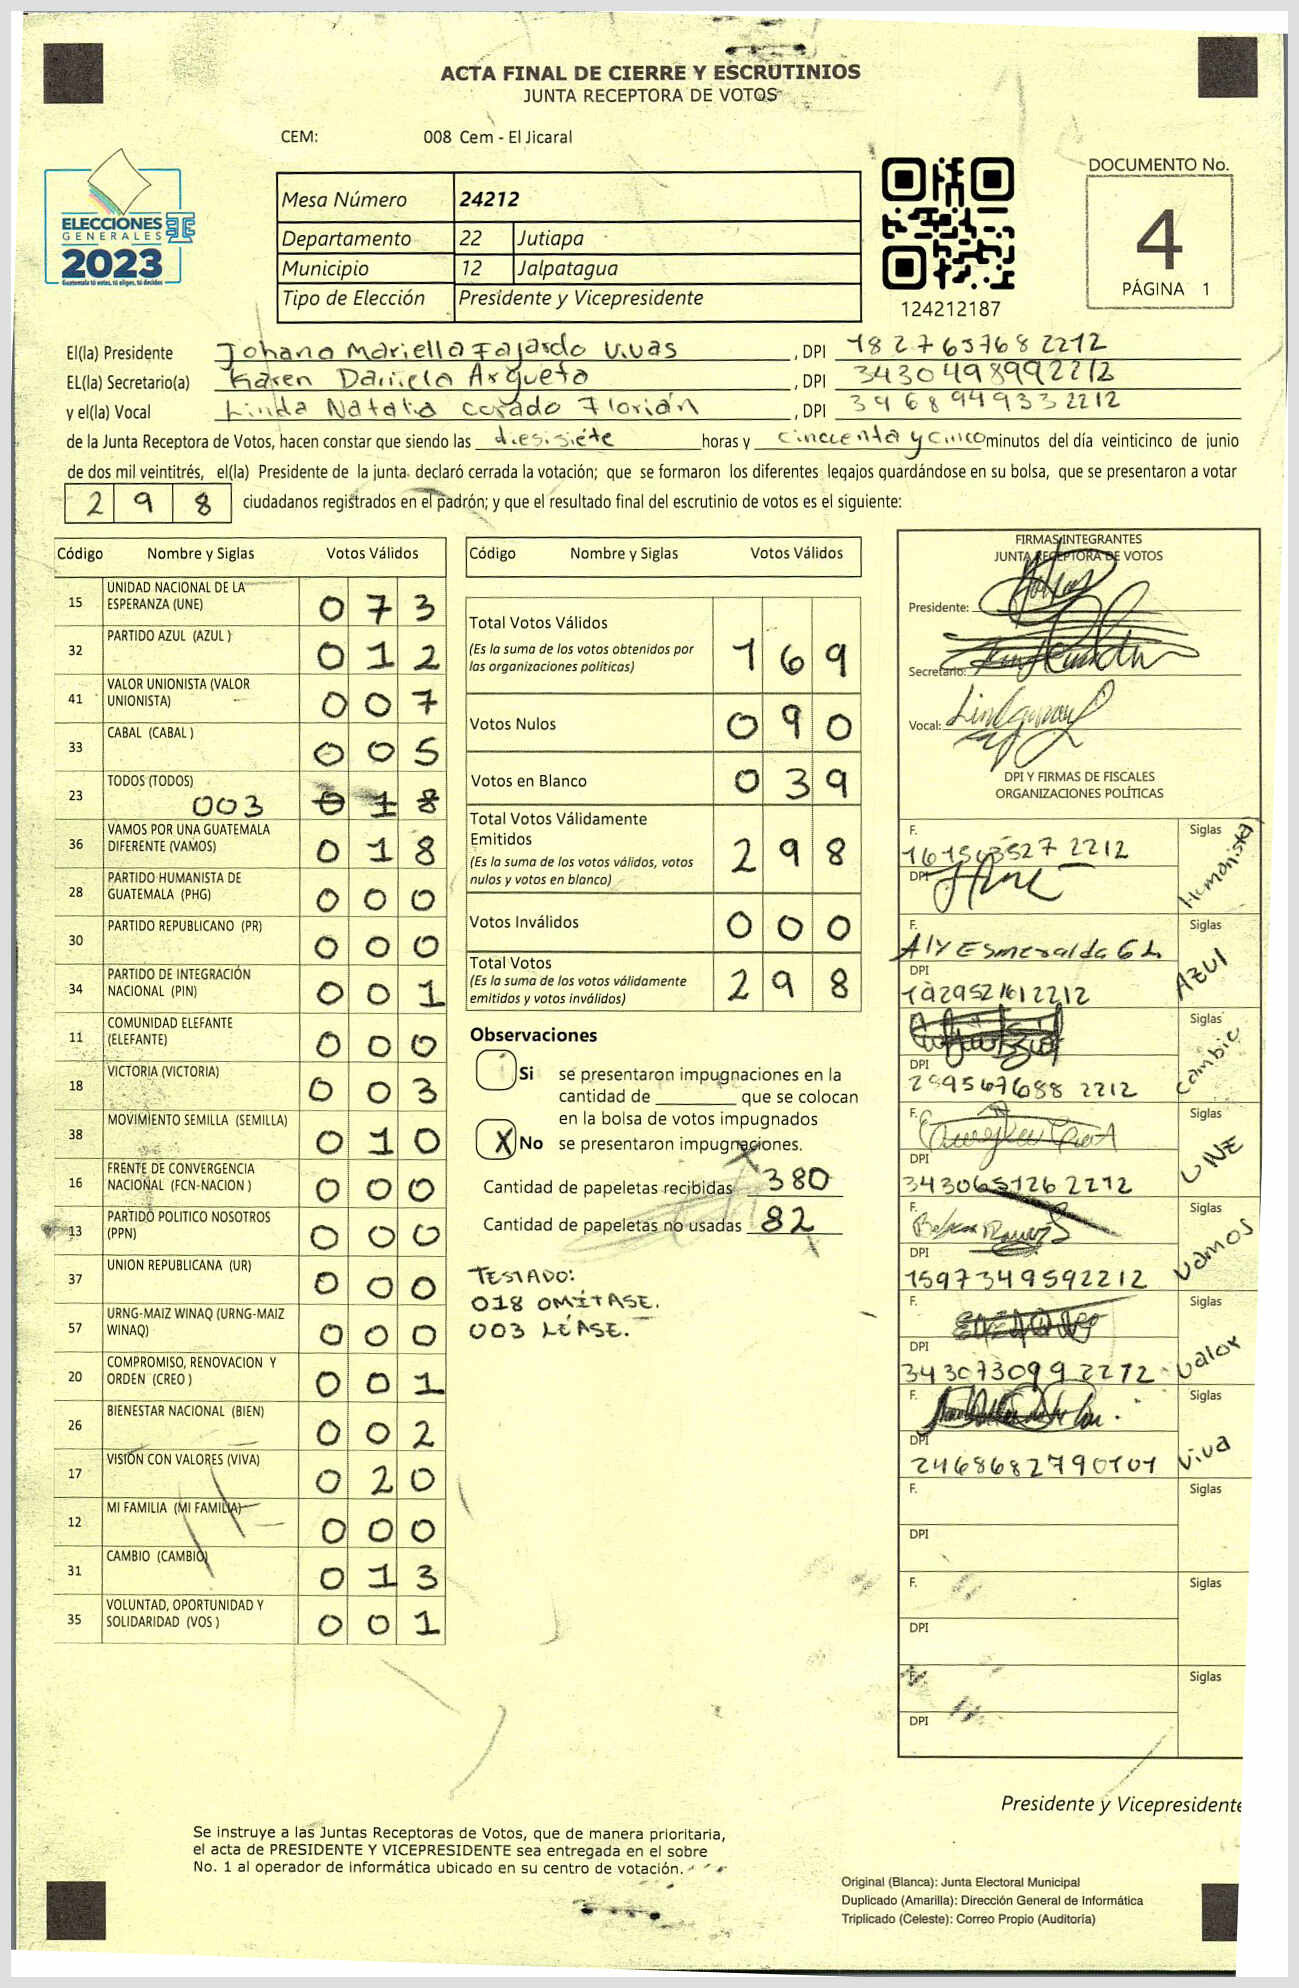 ACTA FINAL DE CIERRE Y ESCRUTINIOS
JUNTA RECEPTORA DE VOTOS
CEM: 008 Cem - El Jicaral
ELECCIONES
GENERALES
2023
Guatemala tú votas, tú eliges, tú decides
Mesa Número 24212
Departamento 22 Jutiapa
Municipio 12 Jalpatagua
Tipo de Elección Presidente y Vicepresidente
124212187
DOCUMENTO No.
4
PÁGINA 1
El(la) Presidente Johana Mariella Fajardo Vivas, DPI 1827637682212
EL(la) Secretario(a) Karen Daniela Argueta, DPI 3430498992212
y el(la) Vocal Linda Natalia Corado Florián, DPI 3968949332212
de la Junta Receptora de Votos, hacen constar que siendo las diesisiete horas y cincuenta y cinco minutos del día veinticinco de junio
de dos mil veintitrés, el(la) Presidente de la junta declaró cerrada la votación; que se formaron los diferentes legajos guardándose en su bolsa, que se presentaron a votar
298 ciudadanos registrados en el padrón; y que el resultado final del escrutinio de votos es el siguiente:
Código Nombre y Siglas Votos Válidos
15 UNIDAD NACIONAL DE LA ESPERANZA (UNE) 073
32 PARTIDO AZUL (AZUL ) 012
41 VALOR UNIONISTA (VALOR UNIONISTA) 007
33 CABAL (CABAL ) 005
23 TODOS (TODOS) 003 018
36 VAMOS POR UNA GUATEMALA DIFERENTE (VAMOS) 018
28 PARTIDO HUMANISTA DE GUATEMALA (PHG) 000
30 PARTIDO REPUBLICANO (PR) 000
34 PARTIDO DE INTEGRACIÓN NACIONAL (PIN) 001
11 COMUNIDAD ELEFANTE (ELEFANTE) 000
18 VICTORIA (VICTORIA) 003
38 MOVIMIENTO SEMILLA (SEMILLA) 010
16 FRENTE DE CONVERGENCIA NACIONAL (FCN-NACION ) 000
13 PARTIDO POLITICO NOSOTROS (PPN) 000
37 UNION REPUBLICANA (UR) 000
57 URNG-MAIZ WINAQ (URNG-MAIZ WINAQ) 000
20 COMPROMISO, RENOVACION Y ORDEN (CREO ) 001
26 BIENESTAR NACIONAL (BIEN) 002
17 VISION CON VALORES (VIVA) 020
12 MI FAMILIA (MI FAMILIA) 000
31 CAMBIO (CAMBIO) 013
35 VOLUNTAD, OPORTUNIDAD Y SOLIDARIDAD (VOS ) 001
Código Nombre y Siglas Votos Válidos
Total Votos Válidos 169
(Es la suma de los votos obtenidos por
las organizaciones políticas)
Votos Nulos 090
Votos en Blanco 039
Total Votos Válidamente
Emitidos 298
(Es la suma de los votos válidos, votos
nulos y votos en blanco)
Votos Inválidos 000
Total Votos 298
(Es la suma de los votos válidamente
emitidos y votos inválidos)
Observaciones
Si se presentaron impugnaciones en la
cantidad de que se colocan
en la bolsa de votos impugnados
X No se presentaron impugnaciones.
Cantidad de papeletas recibidas 380
Cantidad de papeletas no usadas 82
TESTADO:
018 OMÍTASE.
003 LÉASE.
FIRMAS INTEGRANTES
JUNTA RECEPTORA DE VOTOS
Presidente:
Secretario:
Vocal:
DPI Y FIRMAS DE FISCALES
ORGANIZACIONES POLÍTICAS
F. Siglas Humanista
DPI
F. Aly Esmeralda G L Siglas AZUL
DPI 1929521612212
F. Siglas Cambio
DPI 2995676882212
F. Siglas UNE
DPI 3430651262212
F. Siglas Vamos
DPI 1597349592212
F. Siglas Valor
DPI 3430730992212
F. Siglas Viva
DPI 2468682790101
F. Siglas
DPI
F. Siglas
DPI
F. Siglas
DPI
Presidente y Vicepresidente
Se instruye a las Juntas Receptoras de Votos, que de manera prioritaria,
el acta de PRESIDENTE Y VICEPRESIDENTE sea entregada en el sobre
No. 1 al operador de informática ubicado en su centro de votación.
Original (Blanca): Junta Electoral Municipal
Duplicado (Amarilla): Dirección General de Informática
Triplicado (Celeste): Correo Propio (Auditoría)